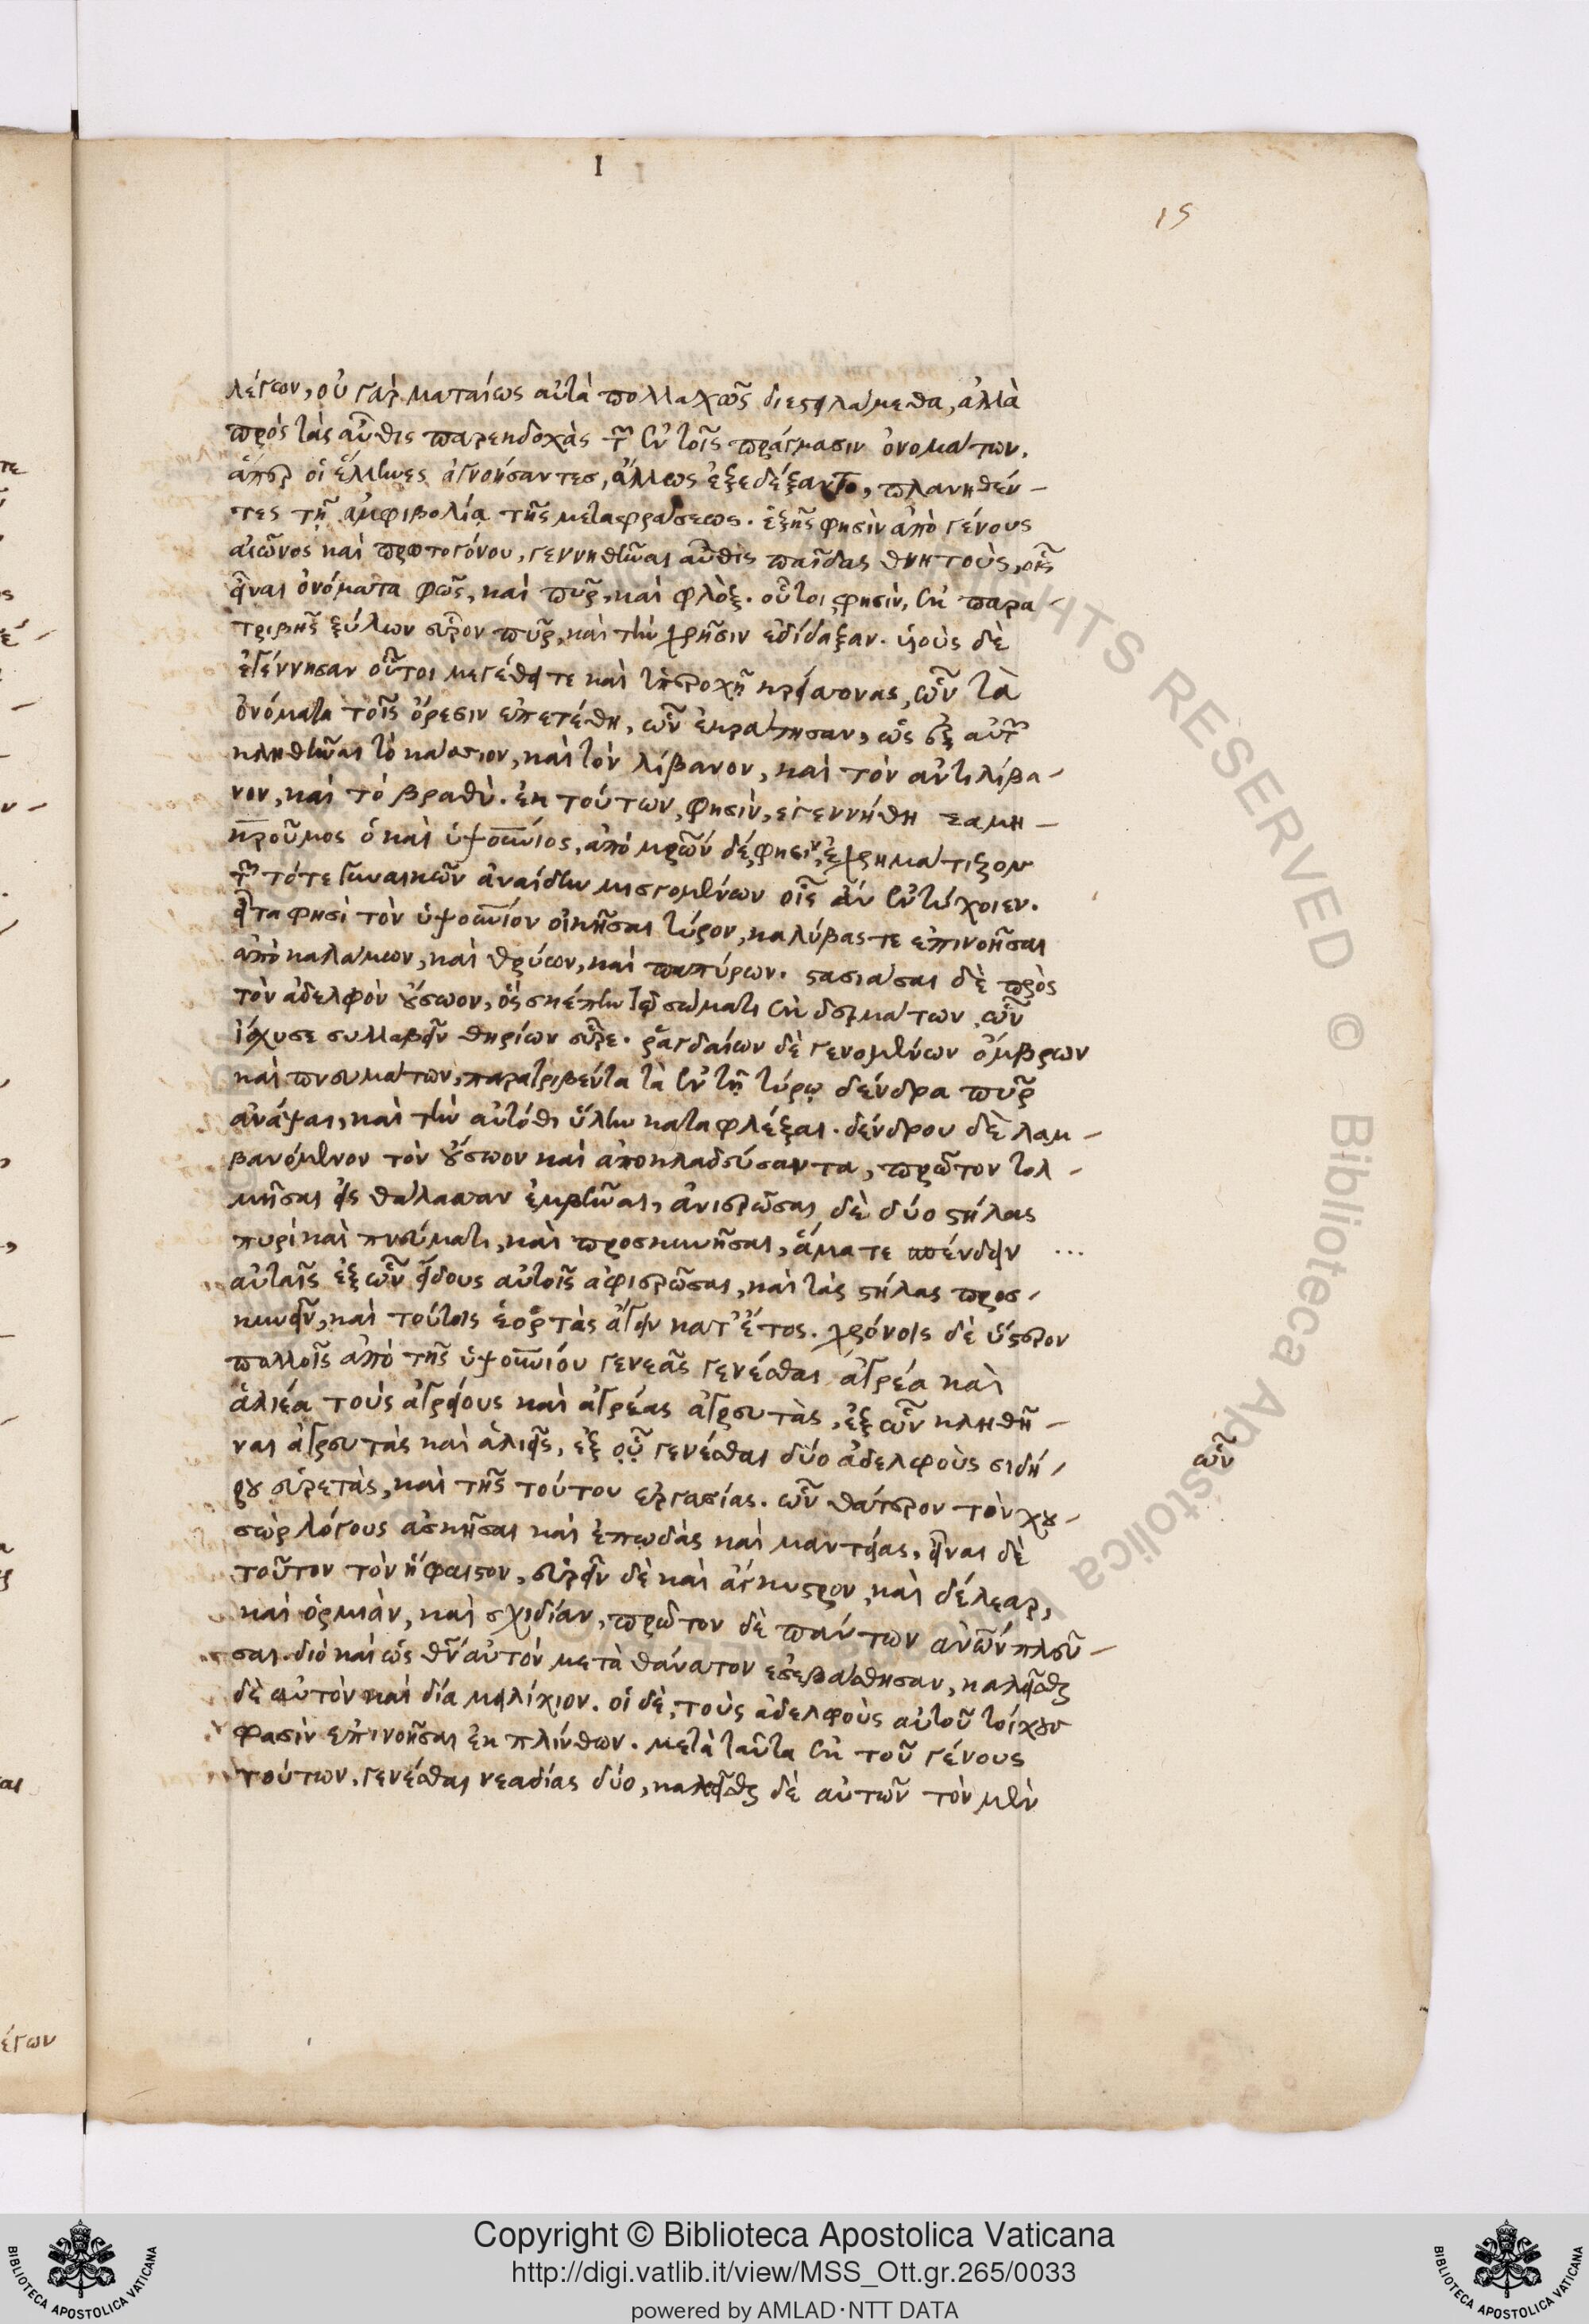 I
15
λέγων, οὐ γὰρ ματαίως αὐτὰ πολλαχῶς διεστειλάμεθα, ἀλλὰ
πρὸς τὰς αὖθις παρεκδοχὰς τῶν ἐν τοῖς πράγμασιν ὀνομάτων,
ἅπερ οἱ ἕλληνες ἀγνοήσαντες, ἄλλως ἐξεδέξαντο, πλανηθέν-
τες τῇ ἀμφιβολίᾳ τῆς μεταφράσεως. ἑξῆς φησὶν ἀπὸ γένους
αἰῶνος καὶ πρωτογόνου, γεννηθῆναι αὖθις παῖδας θνητοὺς, οἷς
εἶναι ὀνόματα φῶς, καὶ πῦρ, καὶ φλόξ. οὗτοι, φησὶν, ἐκ παρα-
τριβῆς ξύλων εὗρον πῦρ, καὶ τὴν χρῆσιν ἐδίδαξαν. υἱοὺς δὲ
ἐγέννησαν οὗτοι μεγέθει τε καὶ ὑπεροχῇ κρείσσονας, ὧν τὰ
ὀνόματα τοῖς ὄρεσιν ἐπετέθη, ὧν ἐκράτησαν, ὡς ἐξ αὐτῶν
κληθῆναι τὸ κάσσιον, καὶ τὸν λίβανον, καὶ τὸν ἀντιλίβα-
νον, καὶ τὸ βραθὺ. ἐκ τούτων, φησὶν, ἐγεννήθη σαμη-
προῦμος ὁ καὶ ὑψουράνιος, ἀπὸ μητέρων δέ, φησιν, ἐχρημάτιζον
τῶν τότε γυναικῶν ἀναίδην μισγομένων οἷς ἂν ἐντύχοιεν.
εἶτα φησὶ τὸν ὑψουράνιον οἰκῆσαι τύρον, καλύβας τε ἐπινοῆσαι
ἀπὸ καλάμων, καὶ θρύων, καὶ παπύρων. στασιάσαι δὲ πρὸς
τὸν ἀδελφὸν οὔσωον, ὃς σκέπην τῷ σώματι ἐκ δερμάτων ὧν
ἴσχυσε συλλαβεῖν θηρίων εὗρε. ῥαγδαίων δὲ γενομένων ὄμβρων
καὶ πνευμάτων, παρατριβέντα τὰ ἐν τῇ τύρῳ δένδρα πῦρ
ἀνάψαι, καὶ τὴν αὐτόθι ὕλην καταφλέξαι. δένδρου δὲ λαμ-
βανόμενον τὸν οὔσωον καὶ ἀποκλαδεύσαντα, πρῶτον τολ-
μῆσαι εἰς θάλασσαν ἐμβῆναι, ἀνιερῶσαι δὲ δύο στήλας
πυρὶ καὶ πνεύματι, καὶ προσκυνῆσαι, ἅμα τε σπένδειν ...
αὐταῖς ἐξ ὧν εἴδους αὐτοῖς ἀφιερῶσαι, καὶ τὰς στήλας προσ-
κυνεῖν, καὶ τούτοις ἑορτὰς ἄγειν κατ' ἔτος. χρόνοις δὲ ὕστερον
πολλοῖς ἀπὸ τῆς ὑψουρανίου γενεᾶς γενέσθαι ἀγρέα καὶ
ἁλιέα τοὺς ἀγρείους καὶ ἀγρέας ἀγρευτὰς, ἐξ ὧν κληθῆ-
ναι ἀγρευτὰς καὶ ἁλιεῖς, ἐξ οὗ γενέσθαι δύο ἀδελφοὺς σιδή-
ὧν
ρου εὑρετὰς, καὶ τῆς τούτου ἐργασίας. ὧν θάτερον τὸν χου-
σὼρ λόγους ἀσκῆσαι καὶ ἐπωδὰς καὶ μαντείας, εἶναι δὲ
τοῦτον τὸν ἥφαιστον, εὑρεῖν δὲ καὶ ἄγκιστρον, καὶ δέλεαρ,
καὶ ὁρμιὰν, καὶ σχεδίαν, πρῶτον δὲ πάντων ἀνθρώπων πλεῦ-
σαι. διὸ καὶ ὡς θεὸν αὐτὸν μετὰ θάνατον ἐσεβάσθησαν, καλεῖσθαι
δὲ αὐτὸν καὶ δία μειλίχιον. οἱ δὲ, τοὺς ἀδελφοὺς αὐτοῦ τοίχους
φασὶν ἐπινοῆσαι ἐκ πλίνθων. μετὰ ταῦτα ἐκ τοῦ γένους
τούτων, γενέσθαι νεανίας δύο, καλεῖσθαι δὲ αὐτῶν τὸν μὲν
έγων
RIGHTS RESERVED © Biblioteca Apostolica Vaticana
Copyright © Biblioteca Apostolica Vaticana
http://digi.vatlib.it/view/MSS_Ott.gr.265/0033
powered by AMLAD·NTT DATA
BIBLIOTECA APOSTOLICA VATICANA
BIBLIOTECA APOSTOLICA VATICANA